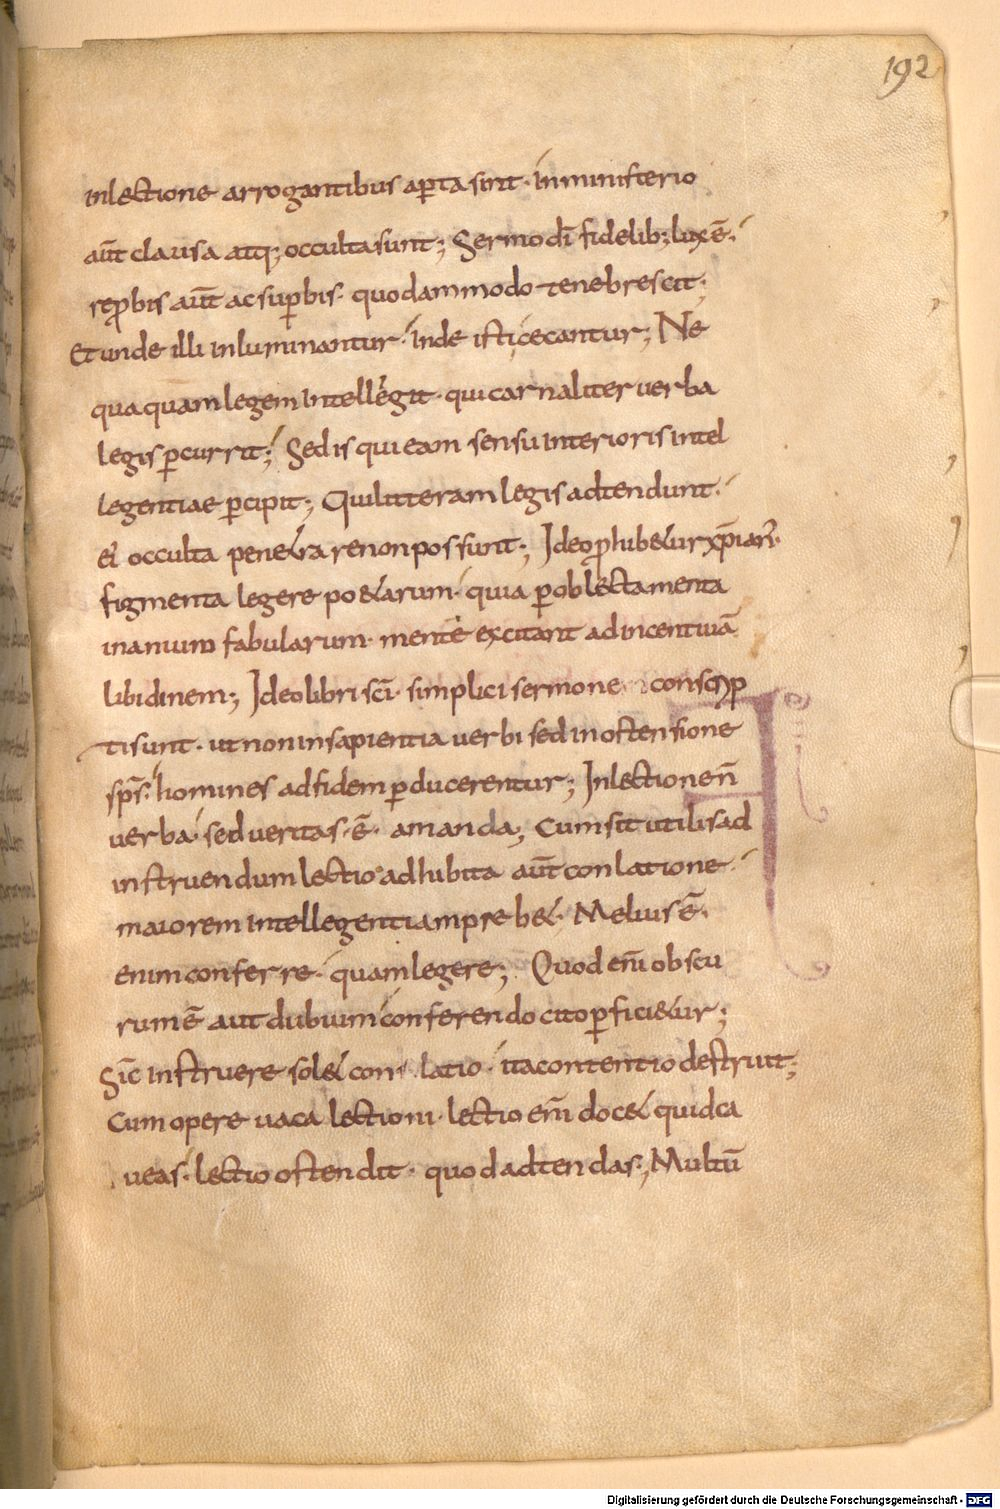 192
inlectione arrogantibus aꝑta sint· inministerio
aūt clausa atq; occulta sunt; Sermo dī fidelib; lux ē·
reꝓbis aūt ac suꝑbis· quodammodo tenebrescit;
Et unde illi inluminantur· inde isti cecantur; Ne
quaquam legem intellegit· qui carnaliter uerba
legis ꝑcurrit; Sed is qui eam sensu interioris intel
legentiae ꝑcipit; Qui litteram legis adtendunt·
ei occulta penetrare non possunt; Ideo ꝓhibetur xp̄ian·
figmenta legere poetarum· quia ꝑ oblectamenta
inanium fabularum· mentē excitant ad incentiuā
libidinem; Ideo libri sc̄i· simplici sermone conscrip
ti sunt· ut non in sapientia uerbi sed in ostensione
sp̄s· homines ad fidem ꝑducerentur; In lectione n̄
uerba sed ueritas· ē· amanda; Cum sit utilis ad
instruendum lectio adhibita aūt conlatione·
maiorem intellegentiam prebet· Melius ē·
enim conferre· quam legere; Quod enī obscu
rum ē aut dubium conferendo cito ꝑficietur;
Sic instruere solet con latio· ita contentio destruit;
Cum opere uaca lectioni· lectio enī docet quid ca
ueas· lectio ostendit· quod adtendas; Multū
Digitalisierung gefördert durch die Deutsche Forschungsgemeinschaft - DFG